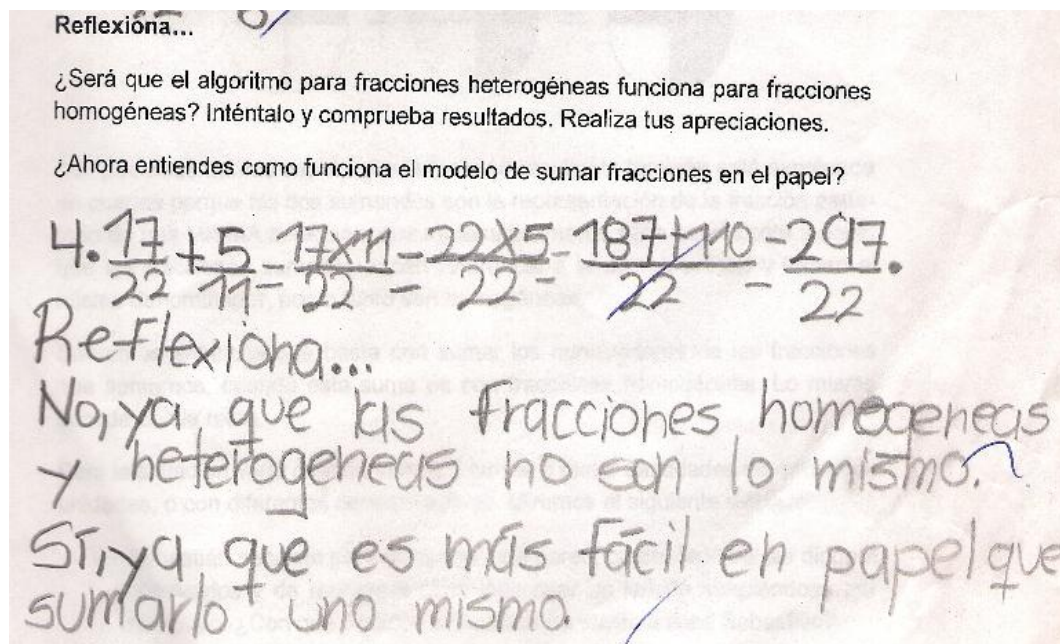 Reflexiona...
¿Será que el algoritmo para fracciones heterogéneas funciona para fracciones
homogéneas? Inténtalo y comprueba resultados. Realiza tus apreciaciones.
¿Ahora entiendes como funciona el modelo de sumar fracciones en el papel?
4. 17/22 + 5/11 = 17x11/22 = 22x5/22 = 187+110/22 = 297/22.
Reflexiona...
No, ya que las fracciones homogeneas
y heterogeneas no son lo mismo.
Sí, ya que es más fácil en papel que
sumarlo uno mismo.